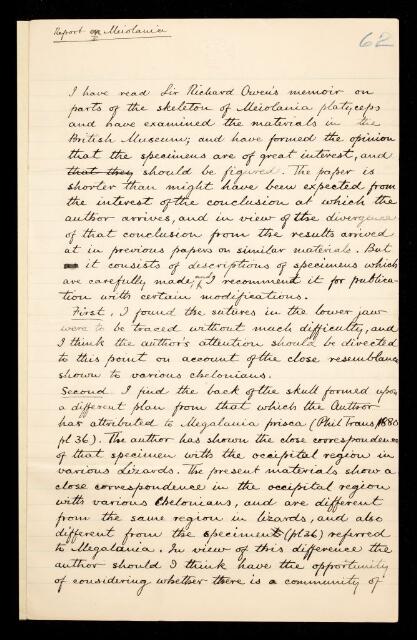 Report on Meiolania
62
I have read Sir Richard Owen's memoir on
parts of the skeleton of Meiolania platyceps
and have examined the materials in the
British Museum; and have formed the opinion
that the specimens are of great interest, and
that they should be figured. The paper is
shorter than might have been expected from
the interest of the conclusion at which the
author arrives, and in view of the divergence
of that conclusion from the results arrived
at in previous papers on similar materials. But
it consists of descriptions of specimens which
are carefully made; I recommend it for publica-
tion with certain modifications.
First, I found the sutures in the lower jaw
were to be traced without much difficulty, and
I think the author's attention should be directed
to this point on account of the close resemblance
shown to various chelonians.
Second I find the back of the skull formed upon
a different plan from that which the Author
has attributed to Megalania prisca (Phil Trans 1880
pl 36). The author has shown the close correspondence
of that specimen with the occipital region in
various lizards. The present materials show a
close correspondence in the occipital region
with various Chelonians, and are different
from the same region in lizards, and also
different from the specimens (pl 36) referred
to Megalania. In view of this difference the
author should I think have the opportunity
of considering whether there is a community of